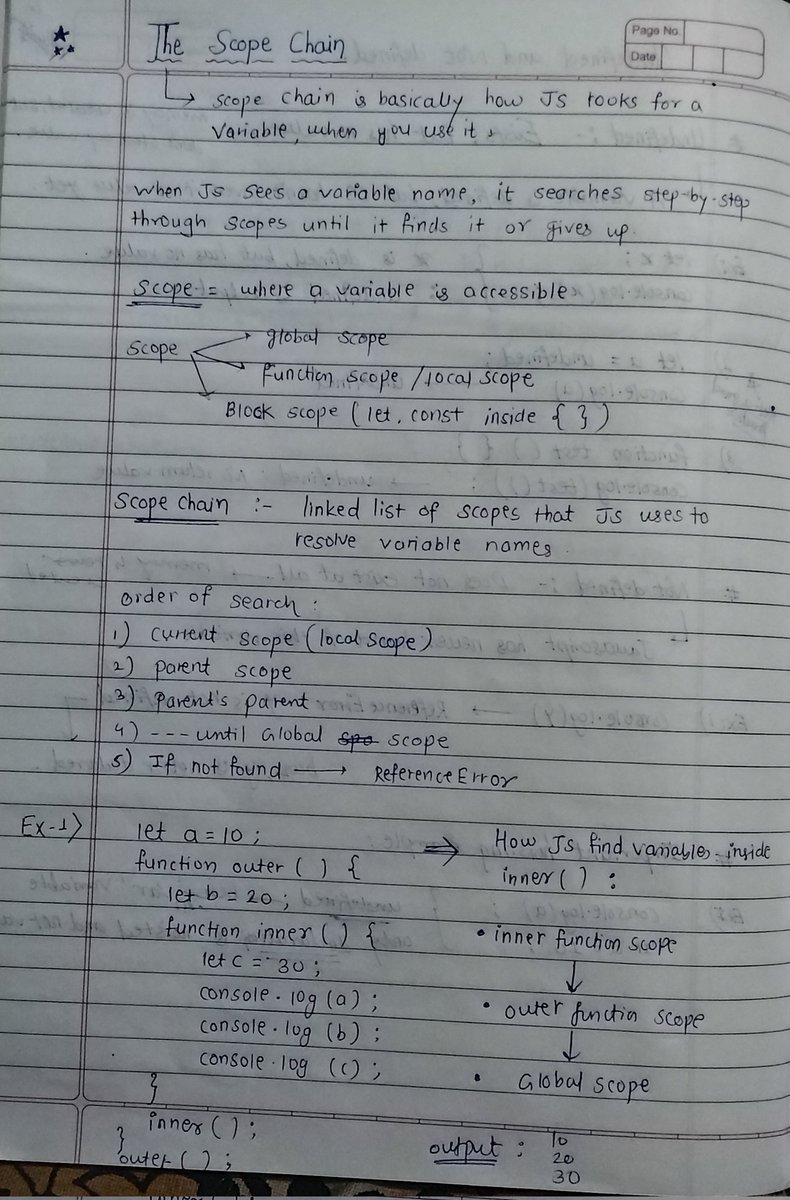 Page No.
Date
The Scope Chain
↳ scope chain is basically how JS looks for a
variable, when you use it.
when JS sees a variable name, it searches step-by-step
through scopes until it finds it or gives up.
Scope = where a variable is accessible
Scope
global scope
Function scope / local scope
Block scope (let, const inside { })
Scope Chain :- linked list of scopes that JS uses to
resolve variable names.
order of search :
1) current scope (local scope)
2) parent scope
3) parent's parent
4) --- until Global spo scope
5) If not found → ReferenceError
Ex-1)
let a = 10 ;
function outer ( ) {
let b = 20 ;
function inner ( ) {
let c = 30 ;
console.log (a) ;
console.log (b) ;
console.log (c) ;
}
inner ( ) ;
}
outer ( ) ;
⇒ How JS find variables inside
inner ( ) :
• inner function scope
↓
• outer functin scope
↓
• Global scope
output : 10
20
30